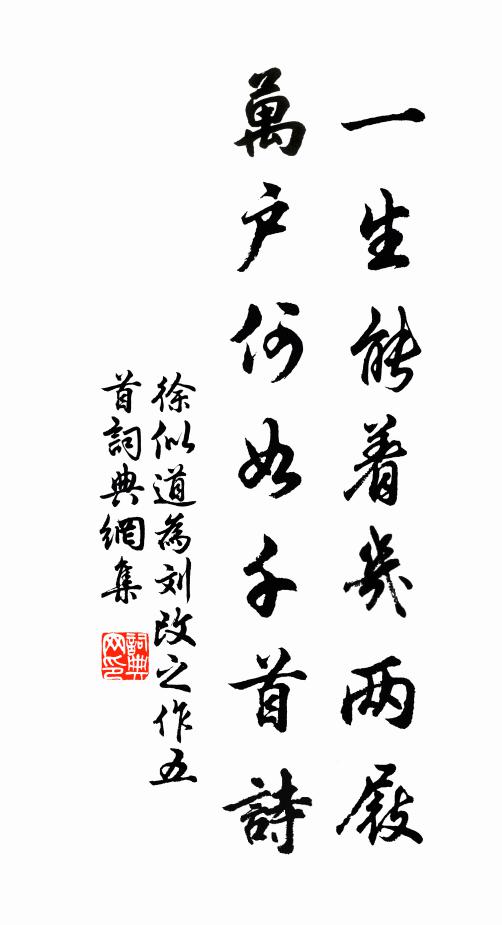 一生能着幾两屐
萬户何如千首詩
徐似道為刘改之作五
首詞典網集
詞典网印